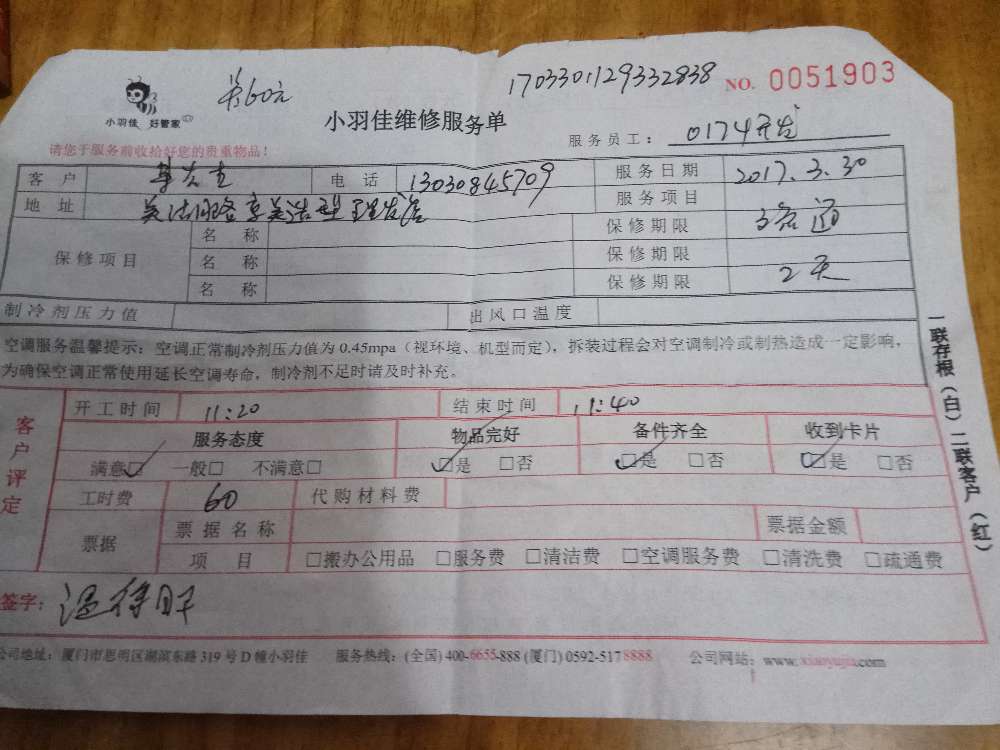 共60元
170330129332838
NO. 0051903
小羽佳 好管家
小羽佳维修服务单
服务员工: 0174
请您于服务前收给好您的贵重物品!
客户 先生 电话 13030845709 服务日期 2017.3.30
地址 服务项目 疏通
保修项目 名称 保修期限
名称 保修期限
名称 保修期限 2天
制冷剂压力值 出风口温度
空调服务温馨提示: 空调正常制冷剂压力值为0.45mpa(视环境、机型而定), 拆装过程会对空调制冷或制热造成一定影响,
为确保空调正常使用延长空调寿命, 制冷剂不足时请及时补充。
客户评定
开工时间 11:20 结束时间 11:40
服务态度 物品完好 备件齐全 收到卡片
满意☑ 一般□ 不满意□ ☑是 □否 ☑是 □否 ☑是 □否
工时费 60 代购材料费
票据 票据名称 票据金额
项目 □搬办公用品 □服务费 □清洁费 □空调服务费 □清洗费 □疏通费
签字:
公司地址: 厦门市思明区湖滨东路319号D幢小羽佳 服务热线: (全国)400-6655-888 (厦门)0592-5178888 公司网站: www.xiaoyujia.com
一联存根(白)二联客户(红)